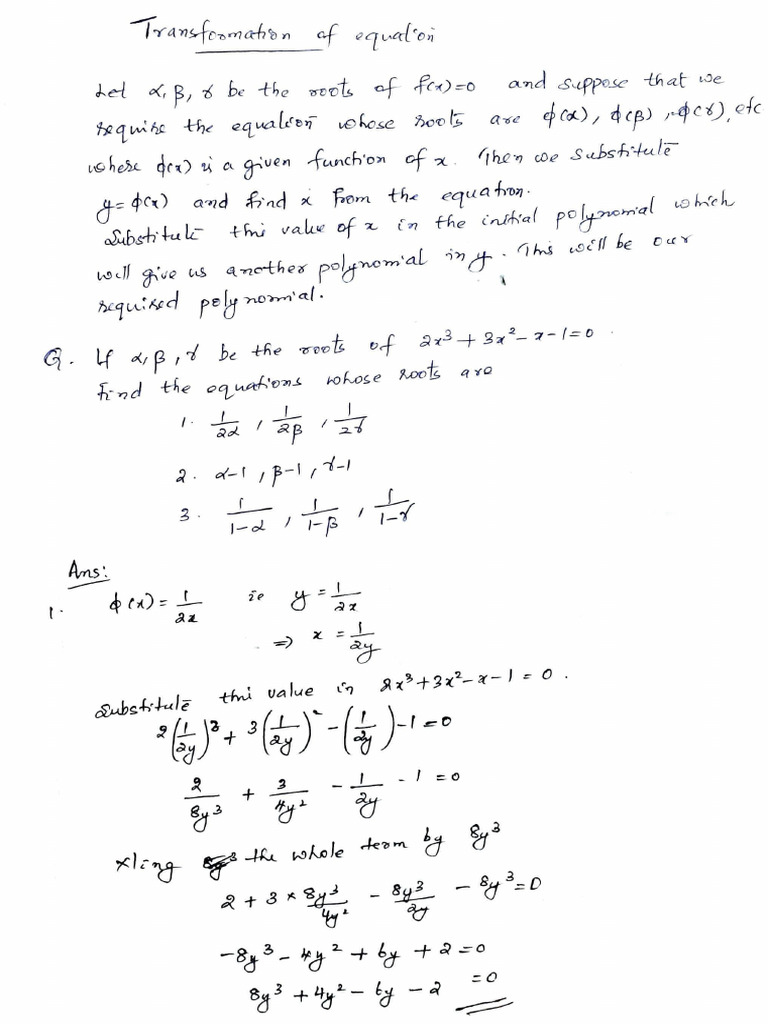 Transformation of equation
Let α, β, γ be the roots of f(x)=0 and suppose that we
require the equation whose roots are ϕ(α), ϕ(β), ϕ(γ), etc
where ϕ(x) is a given function of x. Then we substitute
y=ϕ(x) and find x from the equation.
Substitute this value of x in the initial polynomial which
will give us another polynomial in y. This will be our
required polynomial.
Q. If α, β, γ be the roots of 2x³ + 3x² - x - 1 = 0.
Find the equations whose roots are
1. 1/2α, 1/2β, 1/2γ
2. α-1, β-1, γ-1
3. 1/1-α, 1/1-β, 1/1-γ
Ans:
1. ϕ(x) = 1/2x ie y = 1/2x
⇒ x = 1/2y
Substitute this value in 2x³+3x²-x-1 = 0.
2(1/2y)³ + 3(1/2y)² - (1/2y) - 1 = 0
2/8y³ + 3/4y² - 1/2y - 1 = 0
×ling the whole term by 8y³
2 + 3 × 8y³/4y² - 8y³/2y - 8y³ = 0
-8y³ - 4y² + 6y + 2 = 0
8y³ + 4y² - 6y - 2 = 0